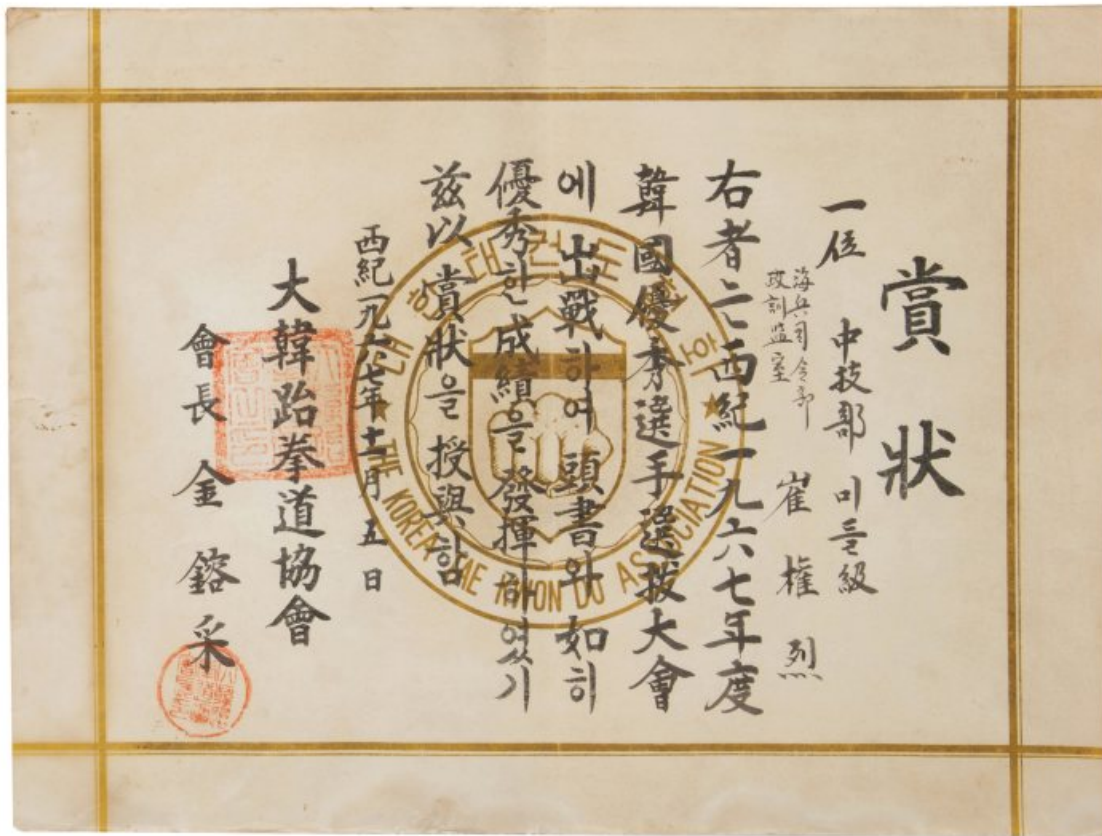 賞狀
一位 中技部 미들級
海兵司令部
政訓監室
崔權烈
右者는 西紀一九六七年度
韓國優秀選手選拔大會
에 出戰하여 頭書와 如히
優秀한 成績을 發揮하였기
玆以 賞狀을 授與함
西紀一九六七年十一月五日
大韓跆拳道協會
會長 金鎔采
대한태권도협회
THE KOREA TAE KWON DO ASSOCIATION